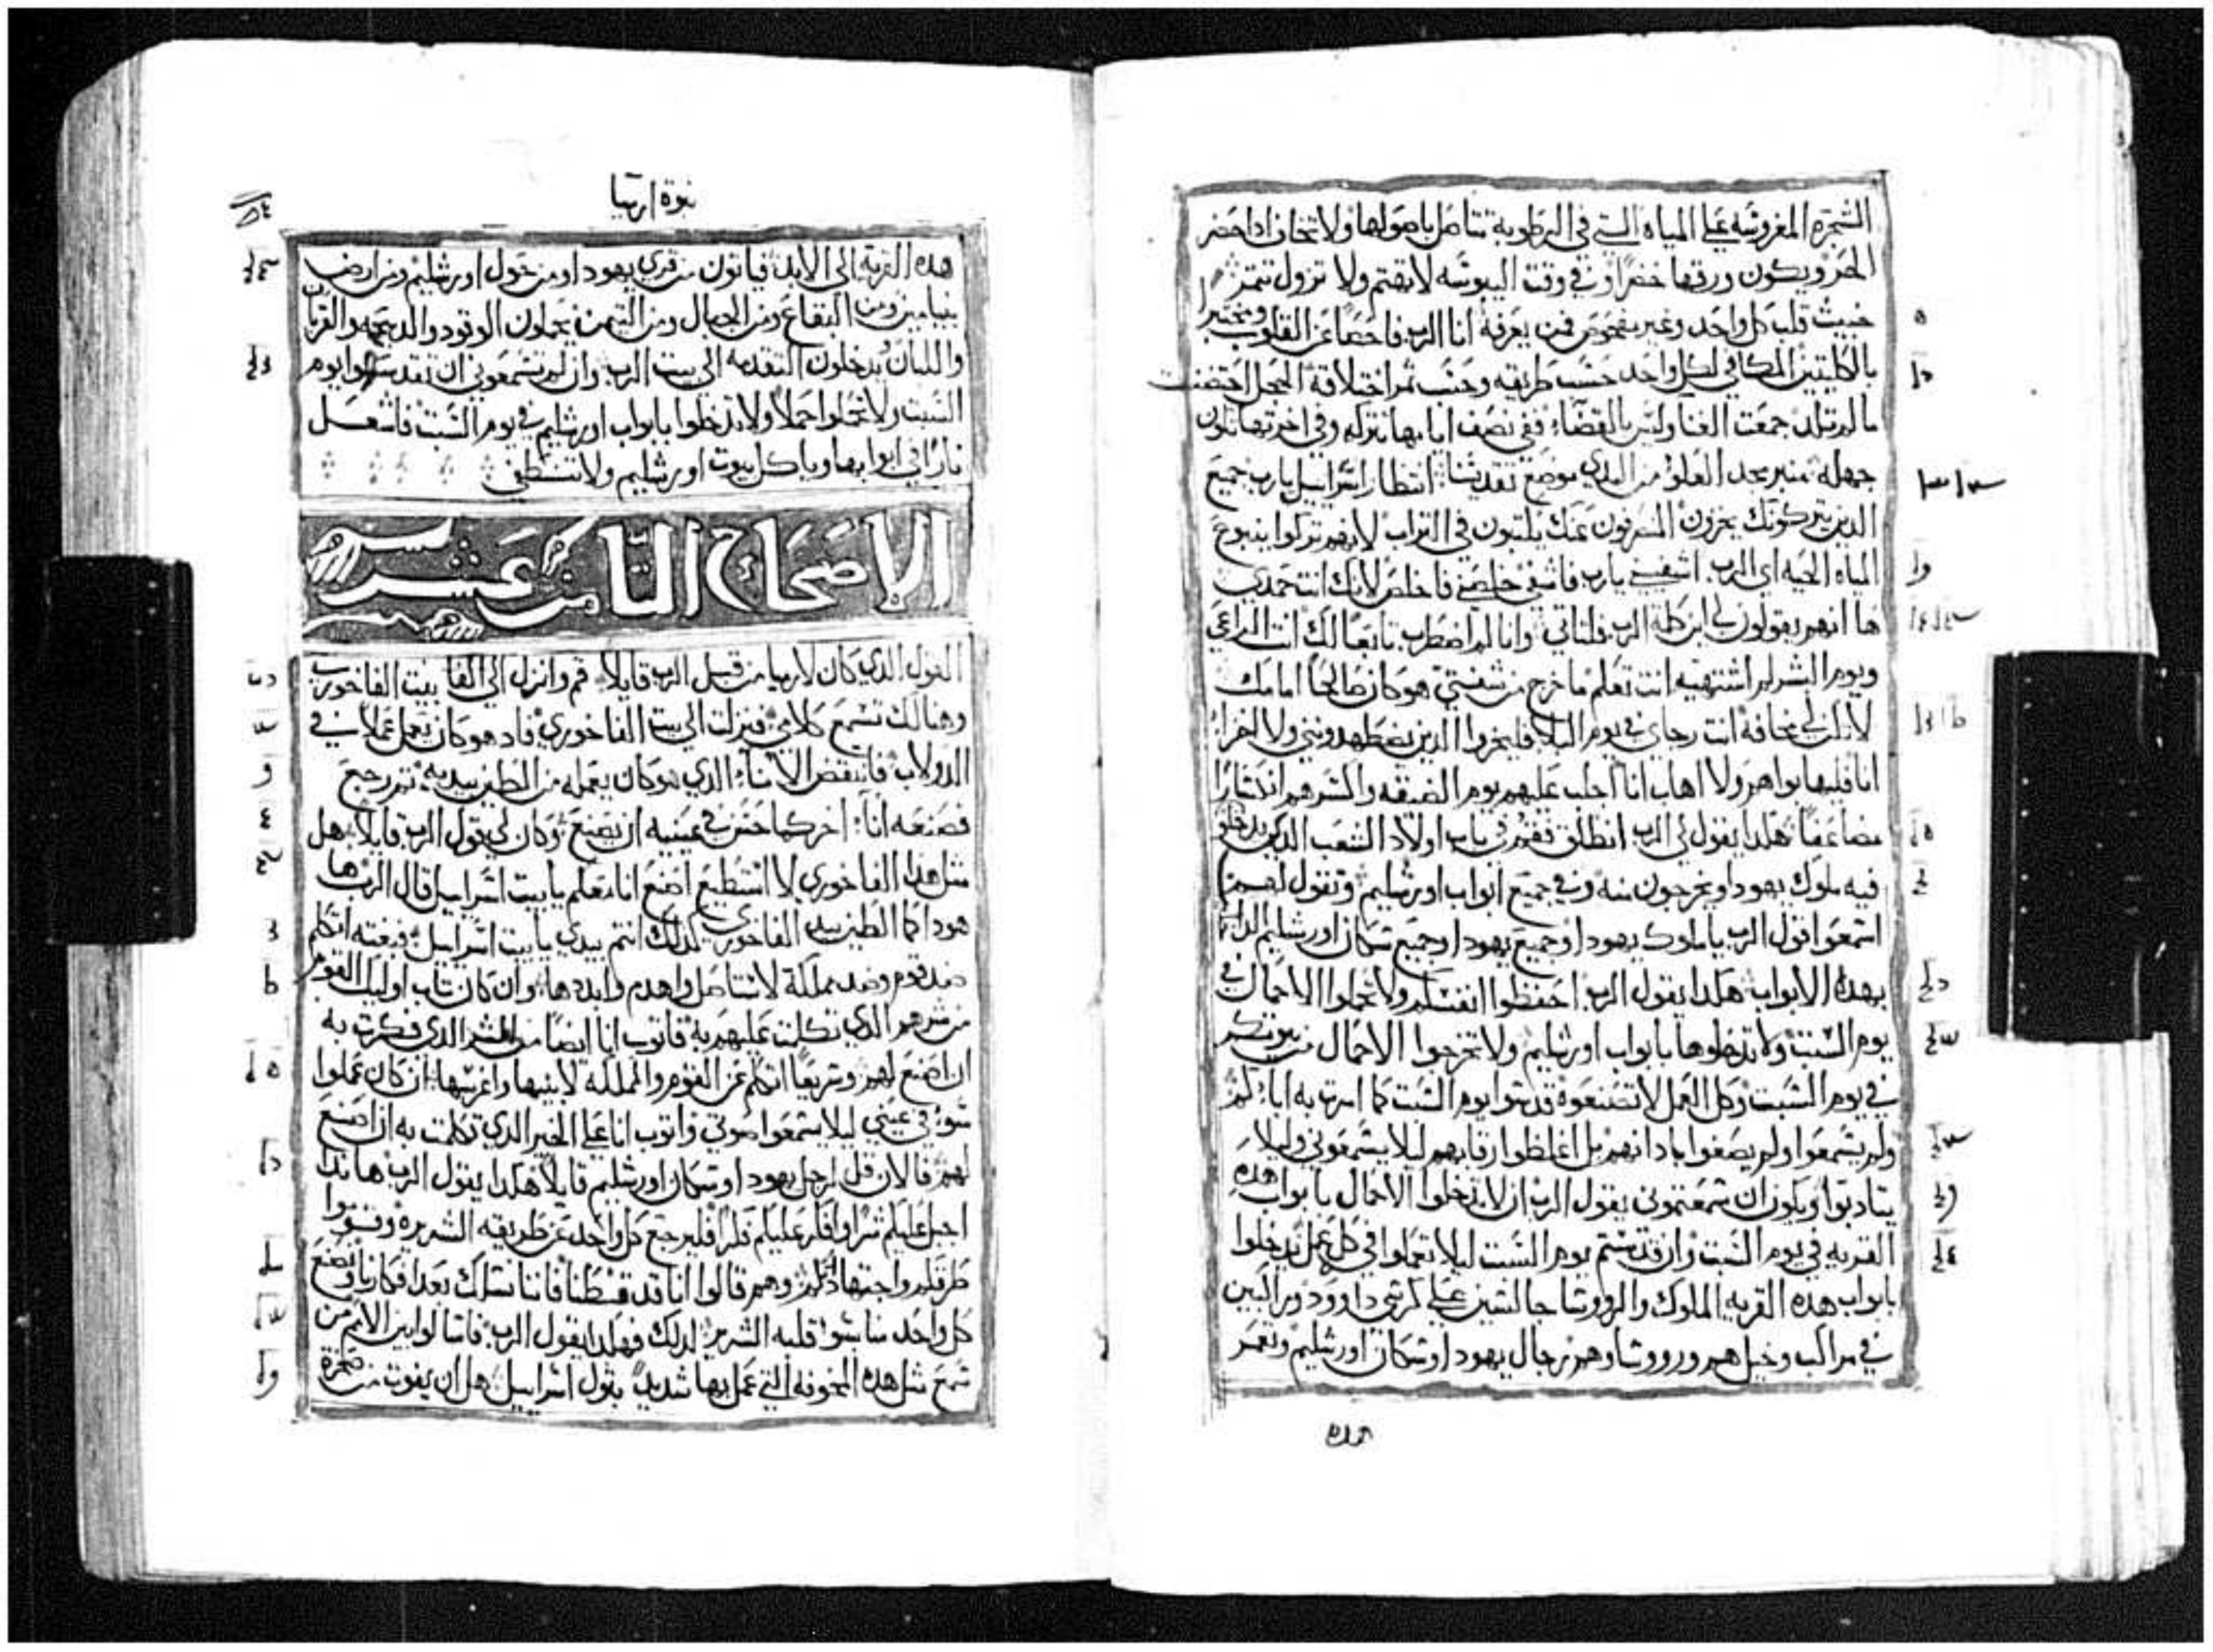 الشجره المغروسه على المياه التي في الرطوبة تتاصل باصولها ولا تخاف ادا حضر
الحر ويكون ورقها خضرا وفي وقت اليبوسه لا يهتم ولا تزول تتمر
خبيث قلب كل واحد وغير مفحوص فمن يعرفه انا الرب فاحصا عن القلوب ومختبرا
بالكليتين المكافي لكل واحد حسب طريقه وحسب ثمر اختلاقة الحجل احتضنت
ما لم تلد جمعت الغنا وليس بالقضاء ففي نصف ايامها تتركه وفي اخرتها تكون
جهله منبر مجد العلو من البدي موضع تقديسنا انتظار اسراييل يارب جميع
الدين يتركونك يخزون المنصرفون عنك يكتبون في التراب لانهم تركوا ينبوع
المياه الحيه اي الرب اشفيني يارب فاشفى خلصني فاخلص لانك انت حمدي
ها انهم يقولون لي اين كلمة الرب فلتاتي وانا لم اضطرب تابعا لك انت الراعي
ويوم البشر لم اشتهيه انت تعلم ما خرج من شفتي هو كان صالحا امامك
لا تكن لي مخافة انت رجاي في يوم البلا فليخزوا الدين يضطهدونني ولا اخزا
انا فليهابوا هم ولا اهاب انا اجلب عليهم يوم الضيقه والشر هم اندثارا
مضاعفا هكدا يقول لي الرب انطلق فقم في باب اولاد الشعب الدين يدخلون
فيه ملوك يهودا ويخرجون منه وفي جميع ابواب اورشليم وتقول لهم
اسمعوا قول الرب يا ملوك يهودا وجميع يهودا وجميع سكان اورشليم الداخلين
بهده الابواب هكدا يقول الرب احفظوا انفسكم ولا تحملوا الاحمال في
يوم السبت ولا تدخلوها بابواب اورشليم ولا تخرجوا الاحمال من بيوتكم
في يوم السبت وكل العمل لا تصنعوه قدسوا يوم السبت كما امرت به اباكم
ولم يسمعوا ولم يصغوا باذانهم بل اغلظوا رقابهم ليلا يسمعوني وليلا
يتادبوا ويكون ان سمعتموني يقول الرب ان لا تدخلوا الاحمال بابواب هده
القريه في يوم السبت وان قدستم يوم السبت ليلا تعملوا في كل عمل تدخلوا
بابواب هده القريه الملوك والروسا جالسين على كرسي داوود وراكبين
في مراكب وخيل هم وروسا وهم رجال يهودا وسكان اورشليم وتعمر
هده
نبوة ارميا
هده القرية الى الابد فياتون من قرى يهودا ومن حول اورشليم ومن ارض
بنيامين ومن البقاع ومن الجبال ومن التيمن يحملون الوقود والدبيحه والقربان
واللبان يدخلون التقدمه الى بيت الرب وان لم تسمعوني ان تقدسوا يوم
السبت ولا تحملوا حملا ولا تدخلوا بابواب اورشليم في يوم السبت فاشعل
نارا في ابوابها وياكل بيوت اورشليم ولا تنطفي
الاصحاح الثامن عشر
القول الدي كان لارميا من قبل الرب قايلا قم وانزل الى بيت الفاخوري
وهنالك تسمع كلامي فنزلت الى بيت الفاخوري فاد هو كان يعمل عملا في
الدولاب فانتقض الانآء الدي هو كان يعمله من الطين بيديه ثم رجع
فصنعه اناء اخر كما حسن في عينيه ان يصنع وكان لي قول الرب قايلا هل
مثل هدا الفاخوري لا استطيع اصنع انا معكم يا بيت اسراييل قال الرب ها
هودا كما الطين بيد الفاخوري كدلك انتم بيدي يا بيت اسراييل فبغته اتكلم
ضد قوم وضد مملكة لاستاصل واهدم وابددها وان كان تاب اوليك القوم
من شرهم الدي تكلمت عليهم به فاتوب انا ايضا من الشر الدي فكرت به
ان اصنع لهم وسريعا اتكلم عن القوم والمملكه لابنيها واغرسها ان كان عملوا
سوء في عيني ليلا يسمعوا صوتي فاتوب انا على الخير الدي تكلمت به ان اصنع
لهم فالان قل لرجل يهودا وسكان اورشليم قايلا هكدا يقول الرب هاندا
اجبل عليكم شرا وافكر عليكم فكرا فليرجع كل واحد عن طريقه الشريره وقوموا
طرقكم واجتهادكم وهم قالوا اننا قد قنطنا فاننا نسلك بعد افكارنا ونصنع
كل واحد منا سوا قلبه الشرير لدلك فهكدا يقول الرب فاسالوا بين الامم من
سمع مثل هده المخوفه التي عمل بها شديدا بتول اسراييل هل ان يفوت من صخرة